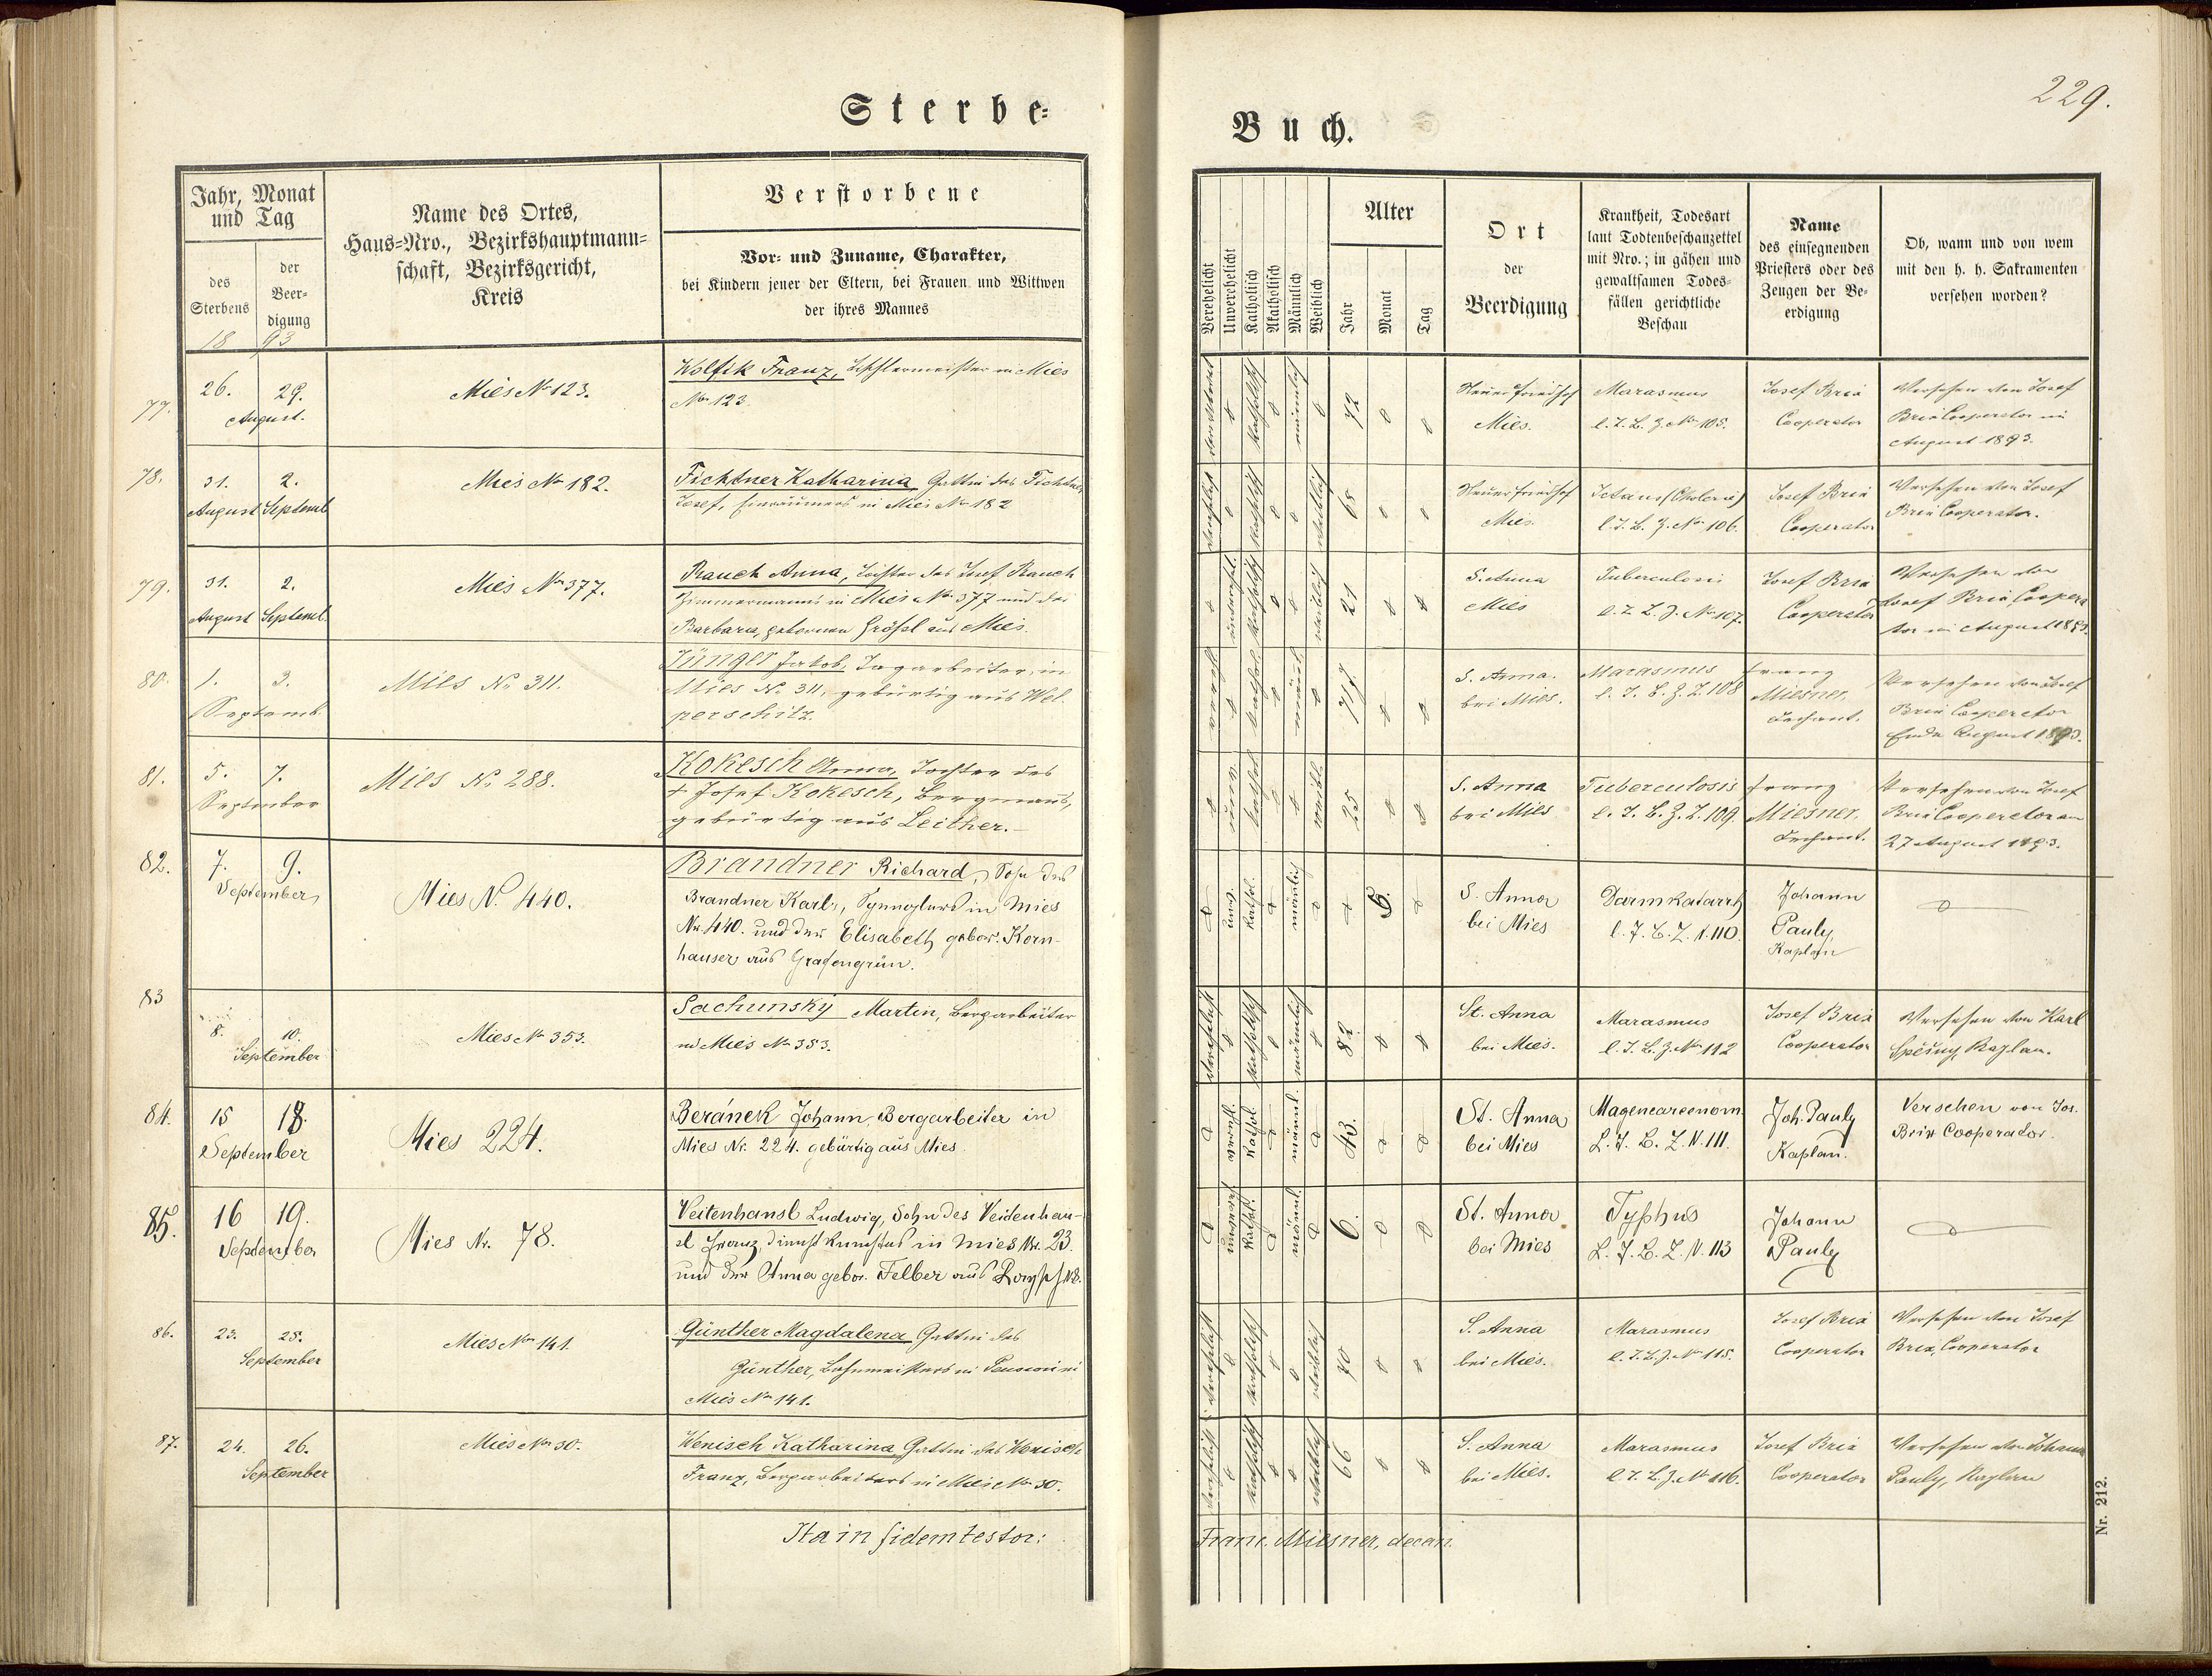 Sterbe-
Buch.
229.
Jahr, Monat
und Tag
des
Sterbens
der
Beer-
digung
18 93
Name des Ortes,
Haus-Nro., Bezirkshauptmann-
schaft, Bezirksgericht,
Kreis
Verstorbene
Vor- und Zuname, Charakter,
bei Kindern jener der Eltern, bei Frauen und Wittwen
der ihres Mannes
Verehelicht
Unverehelicht
Katholisch
Akatholisch
Männlich
Weiblich
Alter
Jahr
Monat
Tag
Ort
der
Beerdigung
Krankheit, Todesart
laut Todtenbeschauzettel
mit Nro.; in gähen und
gewaltsamen Todes-
fällen gerichtliche
Beschau
Name
des einsegnenden
Priesters oder des
Zeugen der Be-
erdigung
Ob, wann und von wem
mit den h. h. Sakramenten
versehen worden?
77.
26. 29.
August.
Mies No 123.
Wolfik Franz, Tischlermeister in Mies
No 123.
katholisch
männlich
72
Neuer Friedhof
Mies.
Marasmus
l. T. B. Z. No 105.
Josef Brix
Cooperator
Versehen von Josef
Brix Cooperator im
August 1893.
78.
31. 2.
August Septemb
Mies No 182.
Fichtner Katharina Gattin des Fichtner
Josef, Einräumers in Mies No 182
verehelicht
katholisch
weiblich
65
Neuer Friedhof
Mies.
l. T. B. Z. No 106.
Josef Brix
Cooperator
Versehen von Josef
Brix Cooperator.
79.
31. 2.
August Septemb.
Mies No 377.
Rauch Anna, Tochter des Josef Rauch
Zimmermanns in Mies No 377 und der
Barbara, geborenen Größl aus Mies.
katholisch
weiblich
21
S. Anna
Mies
Tuberculosis
l. T. B. Z. No 107.
Josef Brix
Cooperator
Versehen von
Josef Brix, Coopera
tor im August 1893.
80.
1. 3.
Septemb.
Mies No 311.
Jünger Jakob, Tagarbeiter, in
Mies No 311, gebürtig aus Wel-
perschitz.
verehel.
kathol.
männl.
S. Anna.
bei Mies.
Marasmus
l. T. B. Z. Z. 108
Franz
Miesner,
Dechant.
Versehen von Josef
Brix Cooperator
Ende August 1893.
81.
5. 7.
September
Mies No 288.
Kokesch Anna, Tochter des
+ Josef Kokesch, Bergmanns,
gebürtig aus Leither.
unv.
kathol.
weibl.
25
S. Anna
bei Mies
Tuberculosis
l. T. B. Z. Z. 109.
Franz
Miesner,
Dechant.
Versehen von Josef
Brix Cooperator am
27 August 1893.
82.
7. 9.
September
Mies N. 440.
Brandner Richard, Sohn des
Brandner Karl, Spenglers in Mies
Nr. 440. und der Elisabeth gebor. Korn-
hauser aus Grafengrün.
unv.
kathol.
männlich
S. Anna
bei Mies
Darmkatarrh
l. T. B. Z. N. 110.
Johann
Pauly,
Kaplan
83
8. 10.
September
Mies No 353.
Sachunsky Martin, Bergarbeiter
in Mies No 353.
verehelicht
katholisch
männlich
82
St. Anna
bei Mies.
Marasmus
l. T. B. Z. No 112
Josef Brix
Cooperator
Versehen von Karl
Spěšny, Kaplan.
84.
15 18.
September
Mies 224.
Beránek Johann, Bergarbeiter in
Mies Nr. 224. gebürtig aus Mies.
kathol
männl.
43.
St. Anna
bei Mies
Magencarcenom.
L. T. B. Z. N. 111.
Joh. Pauly
Kaplan.
Versehen von Jos.
Brix Cooperador.
85.
16 19.
September
Mies Nr. 78.
Veitenhansl Ludwig, Sohn des Veidenhan-
sl Franz, in Mies Nr. 23.
und der Anna gebor. Felber aus
kathol.
männl.
6.
St. Anna
bei Mies
Typhus
L. T. B. Z. N. 113
Johann
Pauly
86.
23. 25.
September
Mies No 141.
Günther Magdalena Gattin des
Günther, Bahnmeisters in Pension in
Mies No 141.
verehelicht
katholisch
weiblich
70
S. Anna
bei Mies.
Marasmus
l. T. B. Z. No 115.
Josef Brix
Cooperator
Versehen von Josef
Brix, Cooperator
87.
24. 26.
September
Mies No 30.
Wenisch Katharina Gattin des Wenisch
Franz, Bergarbeiters in Mies No 30.
verehelicht
katholisch
weiblich
66
S. Anna
bei Mies.
Marasmus
l. T. B. Z. No 116.
Josef Brix
Cooperator
Versehen von Johann
Pauly, Kaplan
Ita in fidem testor:
Franc. Miesner, decan.
Nr. 212.